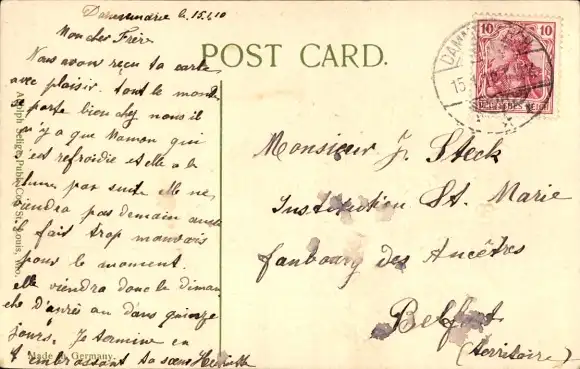 Dammerkirch le 15.1.10
Mon cher Frère
Nous avons reçu ta carte
avec plaisir. tout le monde
se porte bien chez nous il
n'y a que Maman qui
s'est refroidie et elle a le
rhume par suite elle ne
viendra pas demain
il fait trop mauvais
pour le moment.
elle viendra donc le diman
che d'après ou dans quinze
jours. Je termine en
t'embrassant ta sœur Henriette
POST CARD.
Adolph Selige Pub. Co., St. Louis, Mo.
Made in Germany.
10 10
DEUTSCHES REICH
Monsieur J. Steck
Institution St. Marie
faubourg des Ancêtres
Belfort
(territoire)